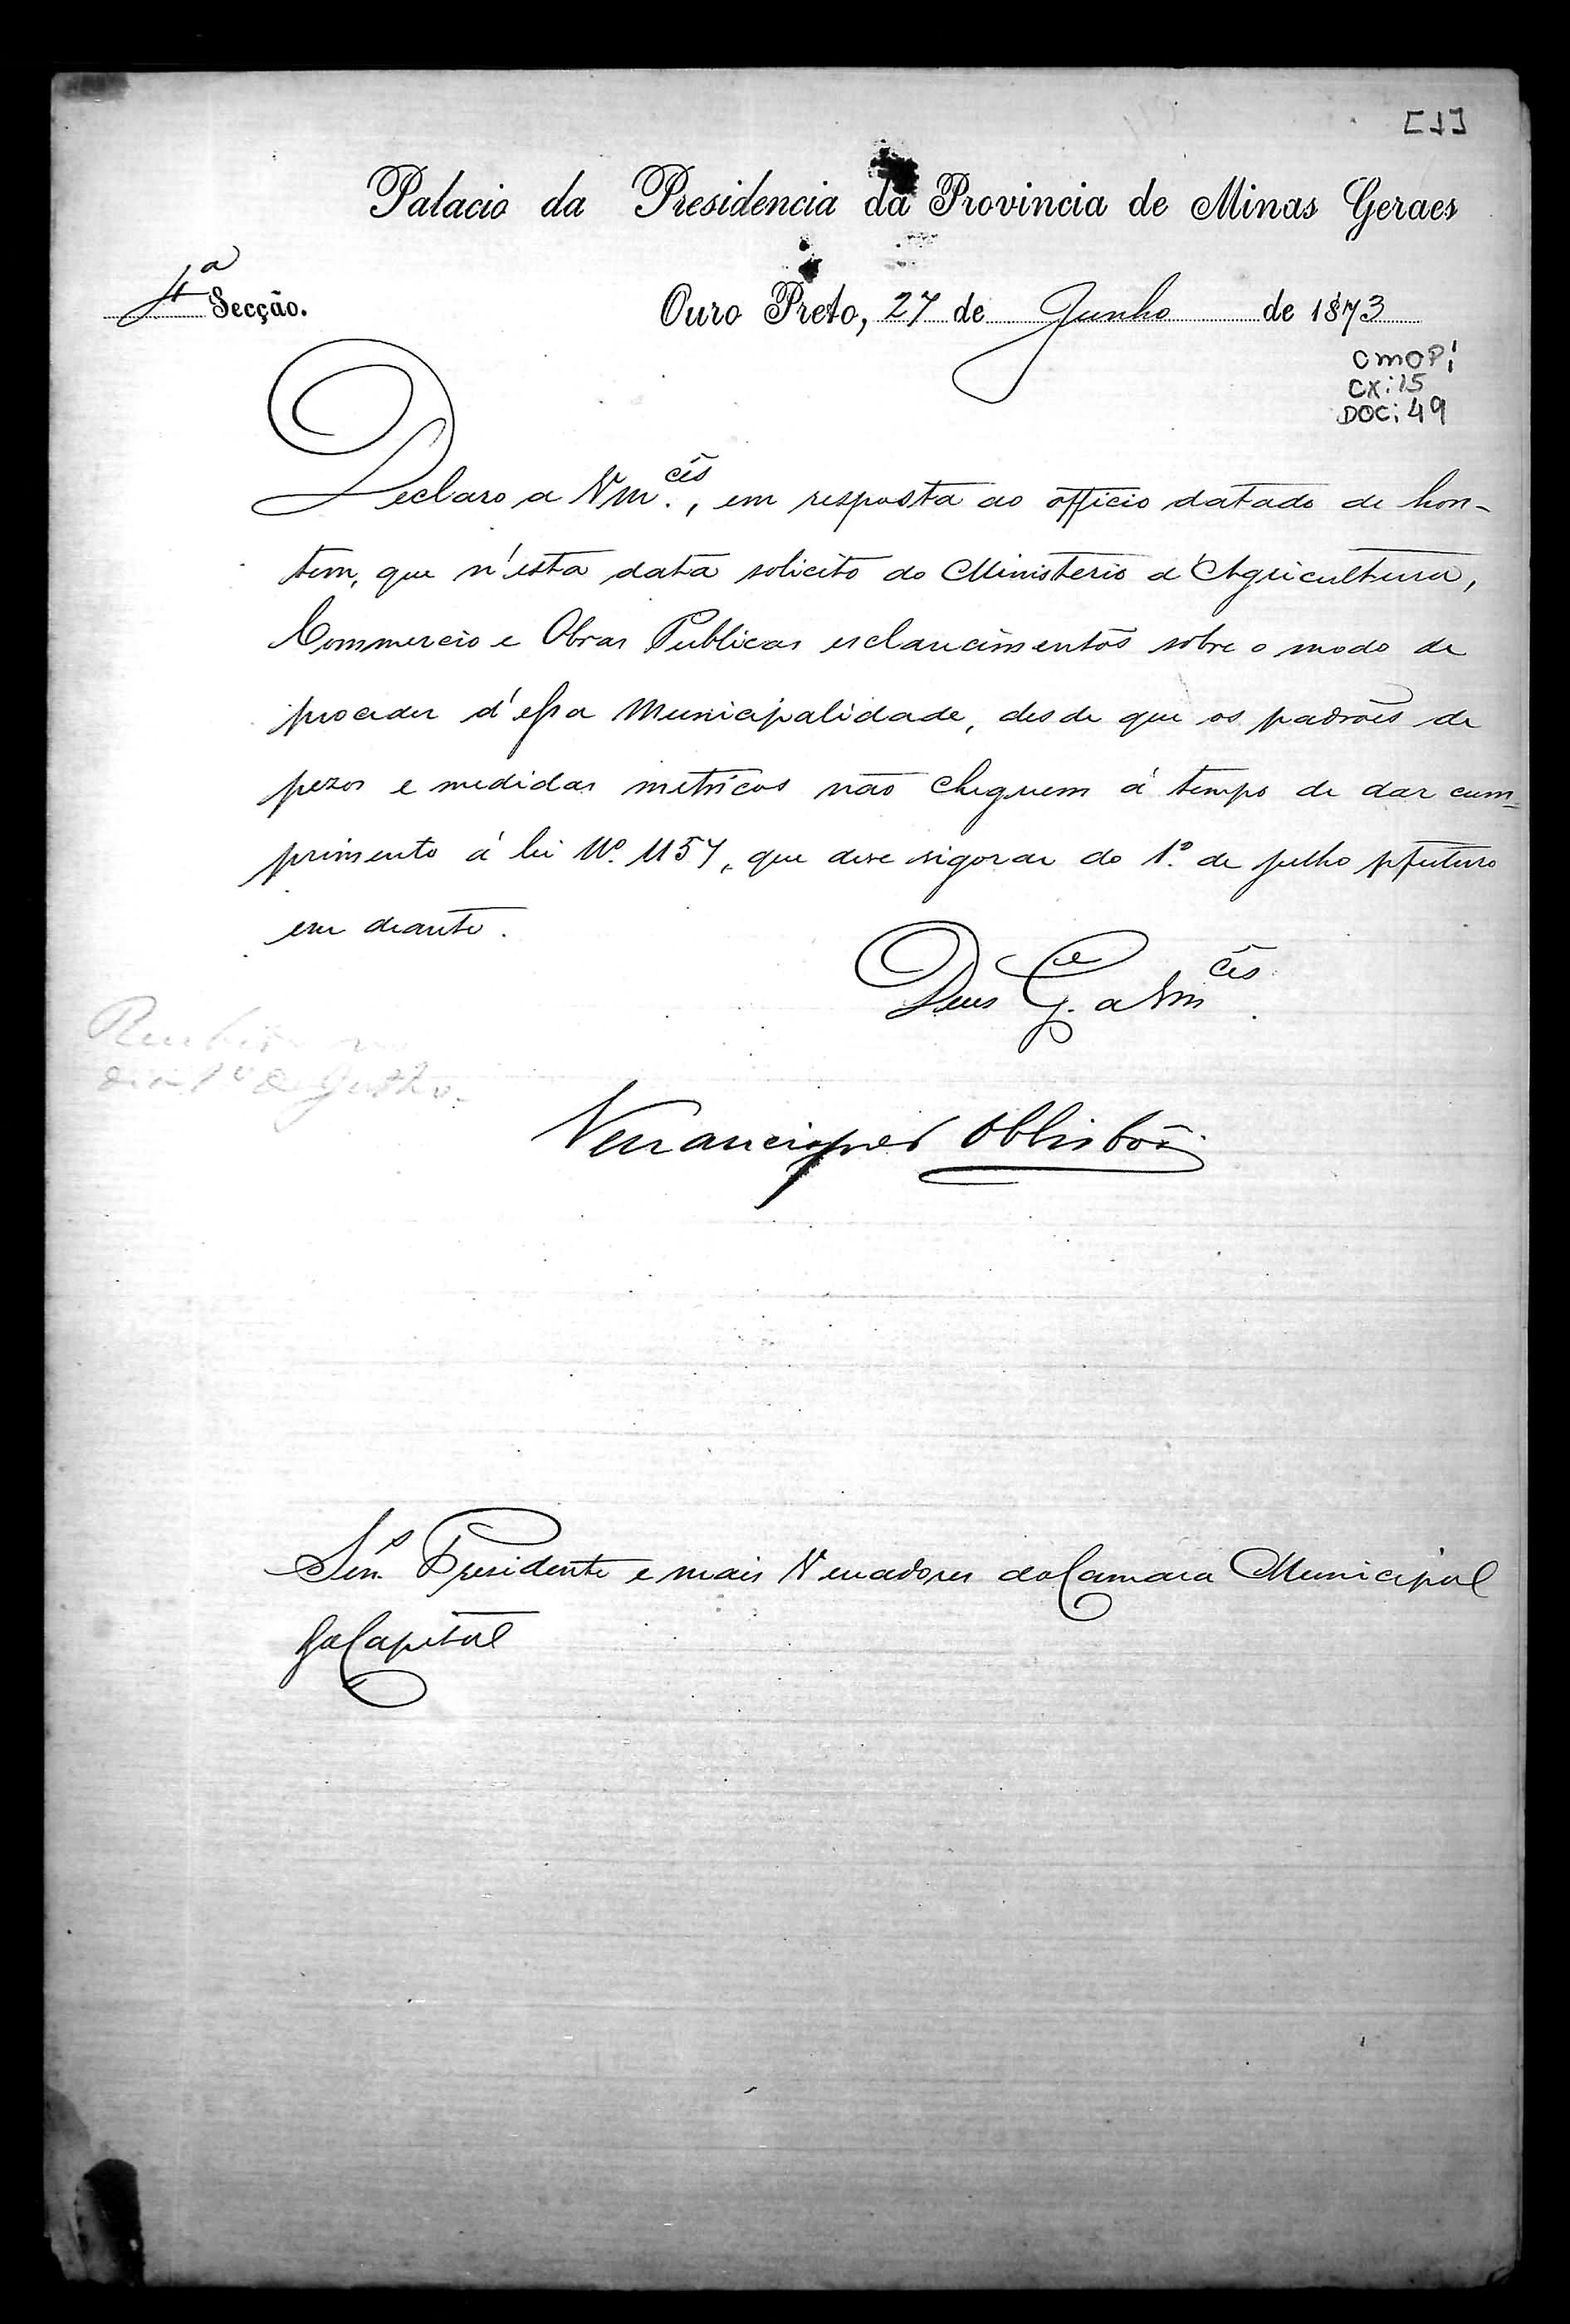 [1]
Palacio da Presidencia da Provincia de Minas Geraes
4ª Secção.
Ouro Preto, 27 de Junho de 1873
CMOP:
CX: 15
DOC: 49
Declaro a Vm.cês, em resposta ao officio datado de hon-
tem, que n'esta data solicito do Ministerio d'Agricultura,
Commercio e Obras Publicas esclarecimentos sobre o modo de
proceder d'essa Municipalidade, desde que os padrões de
pezos e medidas metricos não cheguem á tempo de dar cum=
primento á lei Nº. 1157, que deve vigorar do 1º. de julho pfuturo
em deante.
Deus G.e a Vm.cês
Recebido no
dia 1º de Julho.
Venancio José d'Ol Lisbôa
Snr.s Presidente e mais Vereadores da Camara Municipal
da Capital